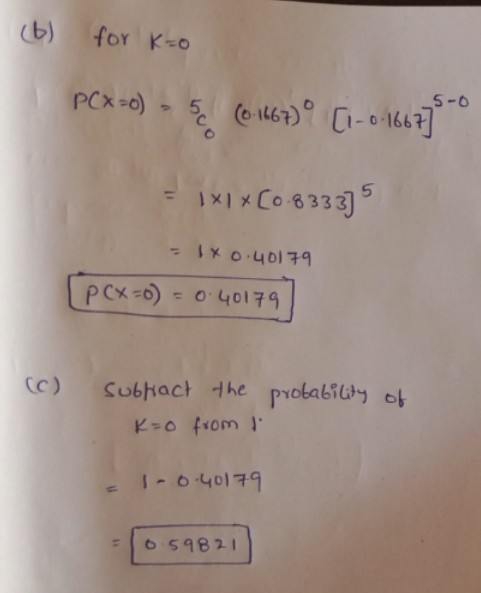 (b) for K=0
P(X=0) = 5C0 (0.1667)^0 [1-0.1667]^5-0
= 1×1×[0.8333]^5
= 1× 0.40179
P(X=0) = 0.40179
(c) Subtract the probability of
K=0 from 1.
= 1-0.40179
= 0.59821